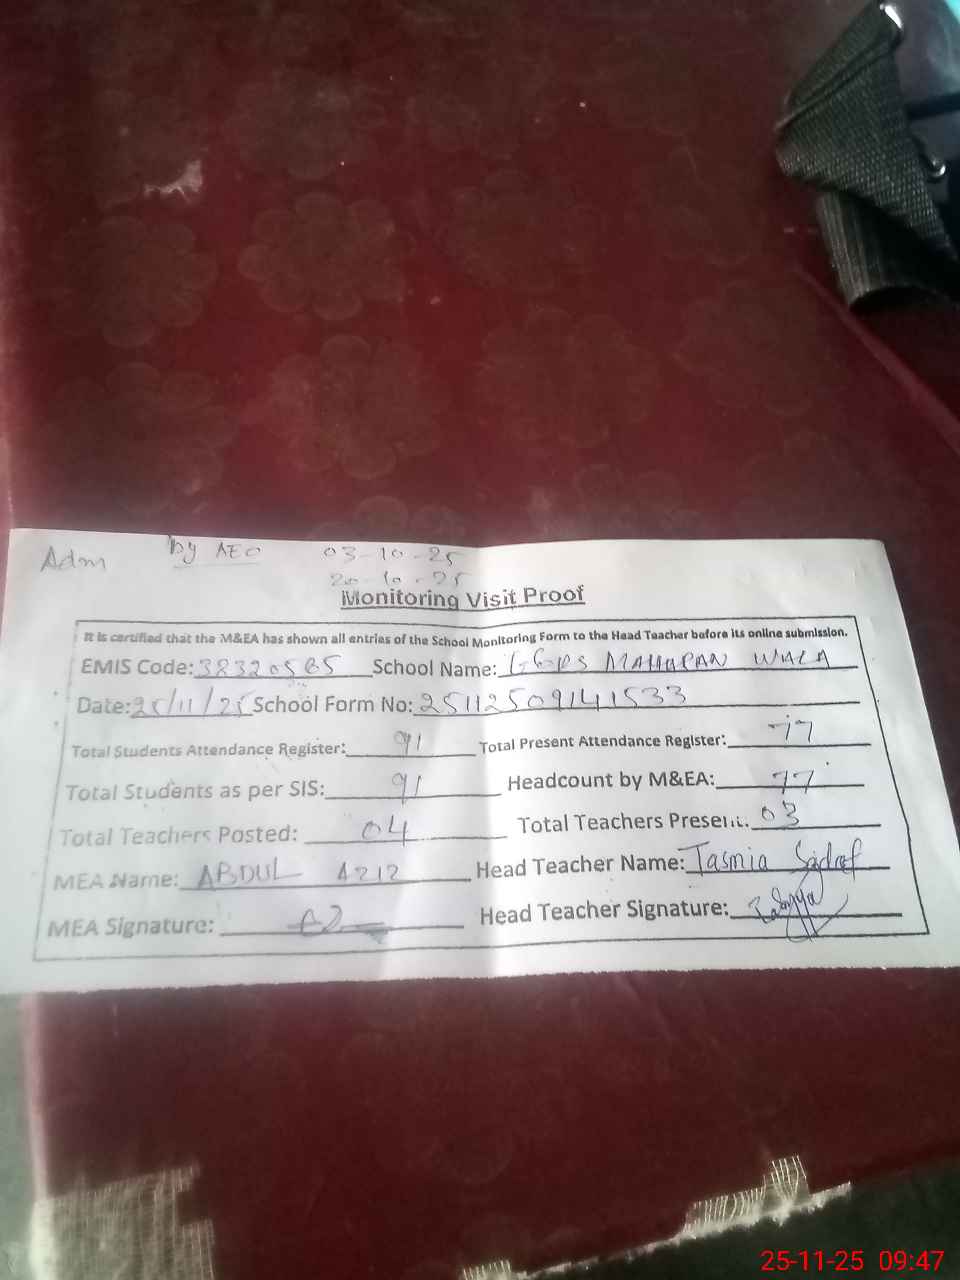 Adm by AEO 03-10-25
20-10-25
Monitoring Visit Proof
It is certified that the M&EA has shown all entries of the School Monitoring Form to the Head Teacher before its online submission.
EMIS Code: 38320565 School Name: GGPS MAHARAN WALA
Date: 25/11/25 School Form No: 25112509141533
Total Students Attendance Register: 91 Total Present Attendance Register: 77
Total Students as per SIS: 91 Headcount by M&EA: 77
Total Teachers Posted: 04 Total Teachers Present: 03
MEA Name: ABDUL AZIZ Head Teacher Name: Tasmia
MEA Signature: Head Teacher Signature:
25-11-25 09:47